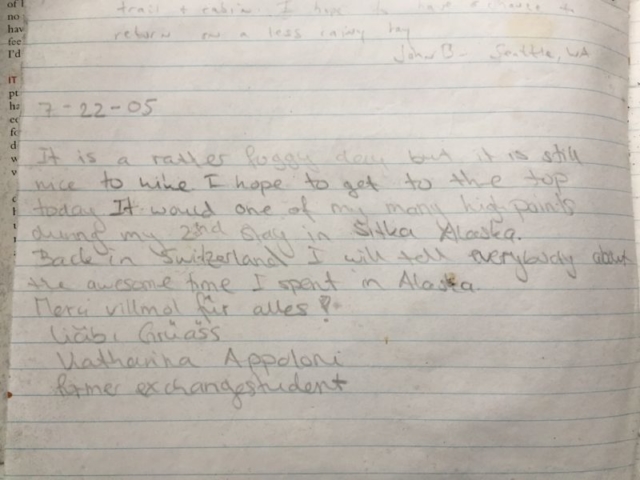 trail + cabin. I hope to have a chance to
return on a less rainy day
John B- Seattle, WA
7-22-05
It is a rather foggy day but it is still
nice to hike I hope to get to the top
today It would one of my many highpoints
during my 2nd stay in Sitka Alaska.
Back in Switzerland I will tell everybody about
the awesome time I spent in Alaska.
Merci villmol für alles!
Liäbi Grüäss
Katharina Appoloni
former exchangestudent
of
no
hav
fee
I'd
IT
pt